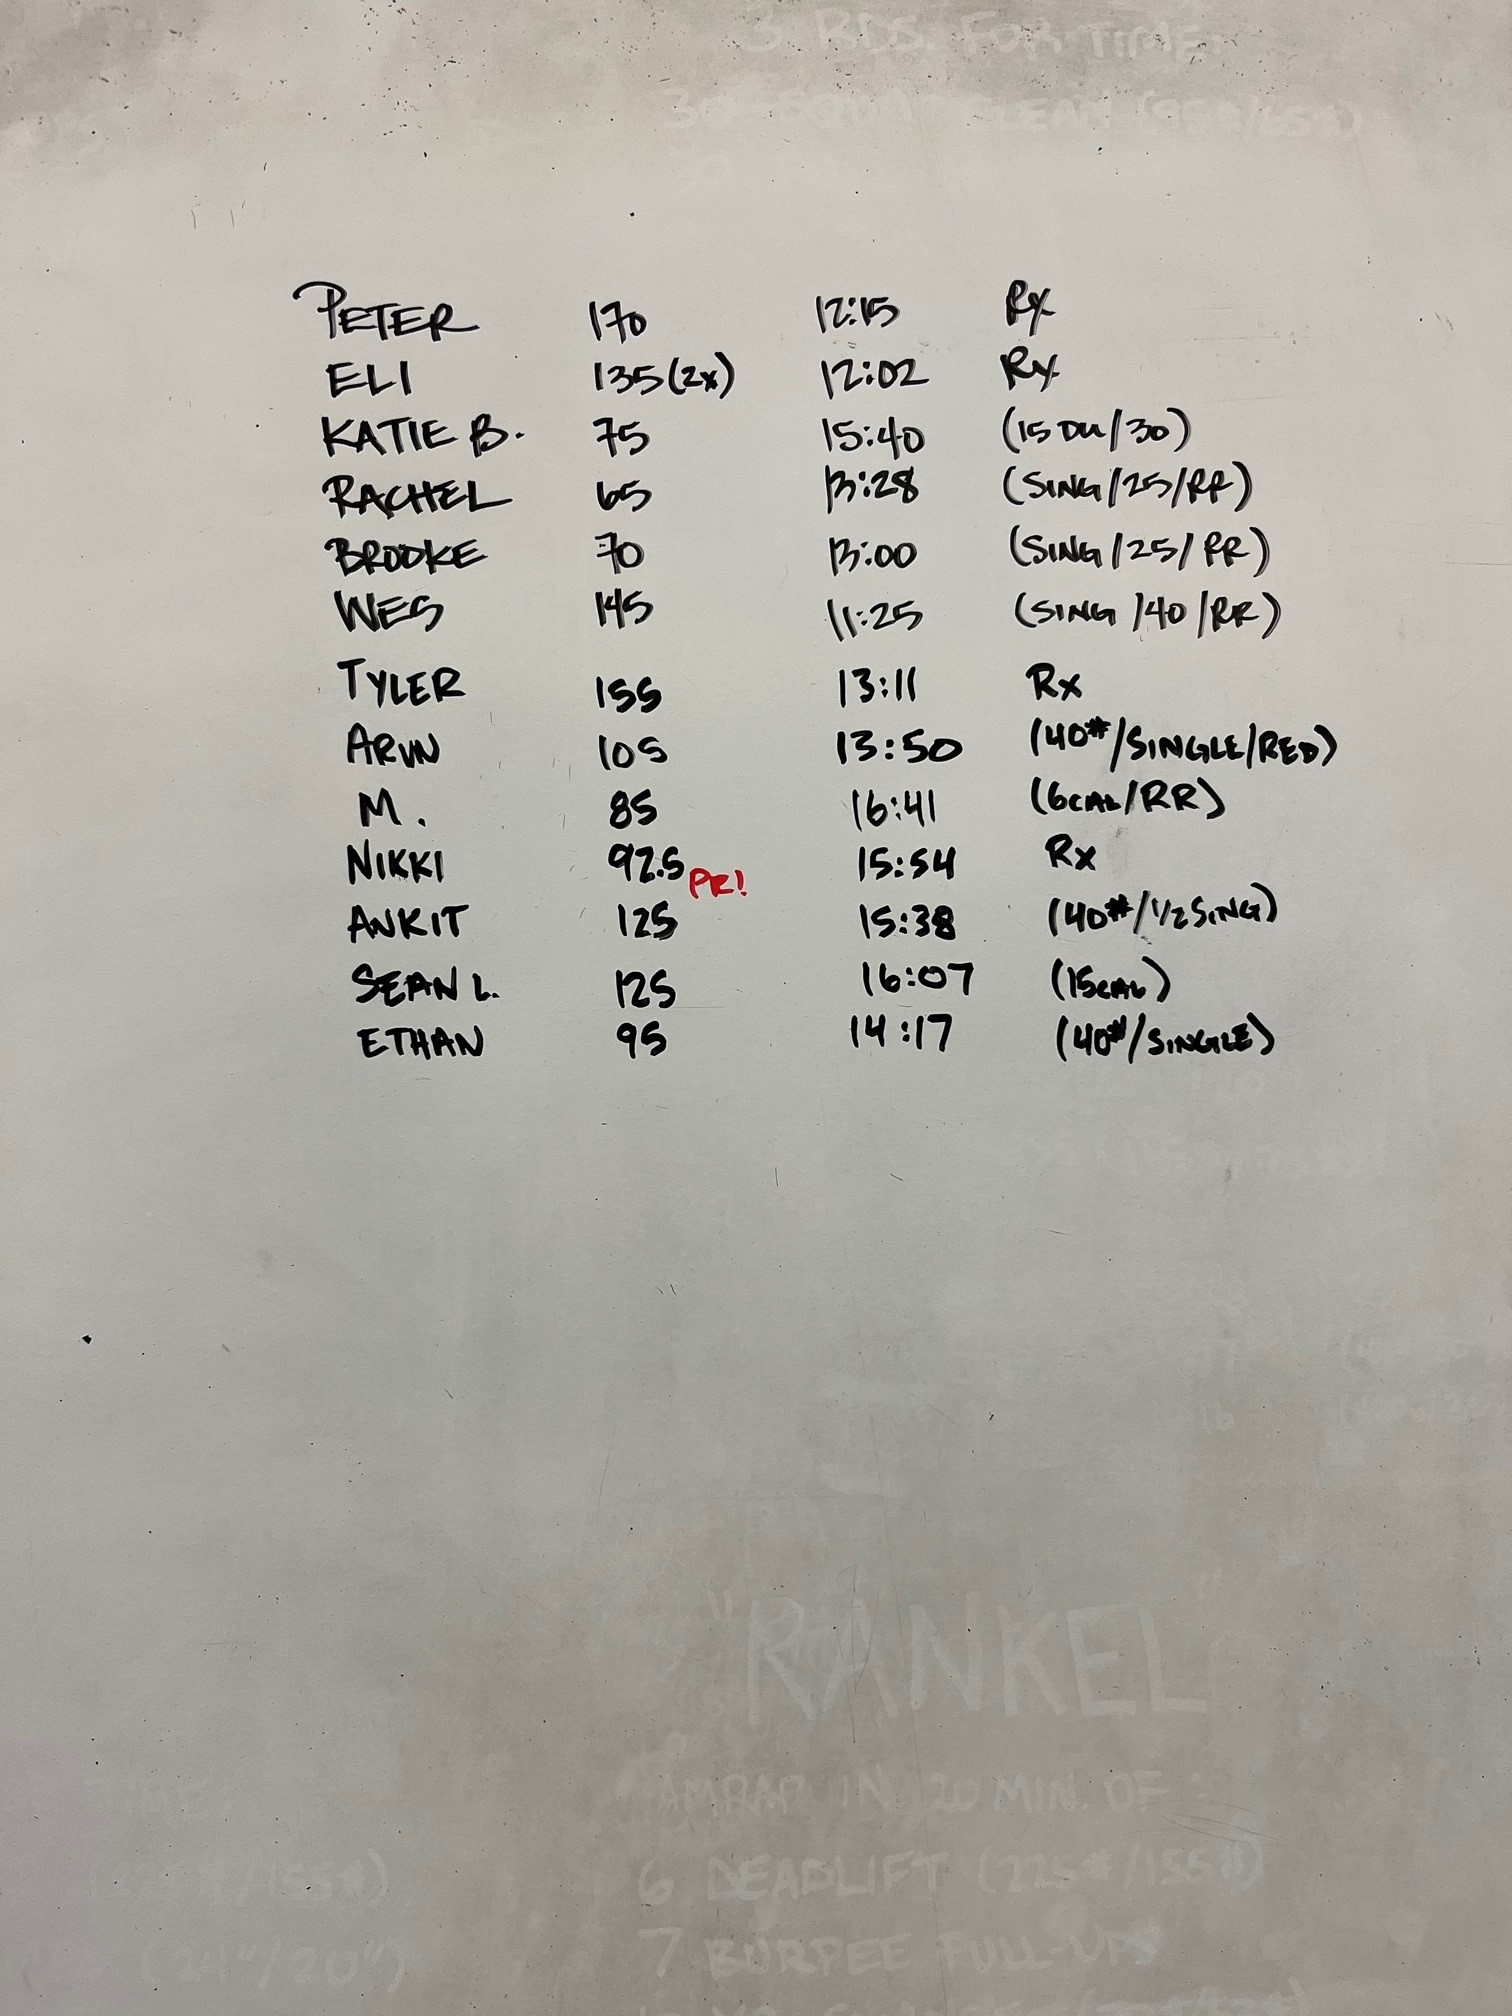 3 RDS. FOR TIME:
CLEAN (95#/65#)
PETER 170 12:15 Rx
ELI 135(2x) 12:02 Rx
KATIE B. 75 15:40 (15 DU/30)
RACHEL 65 13:28 (SING/25/RR)
BROOKE 70 13:00 (SING/25/RR)
WES 145 11:25 (SING/40/RR)
TYLER 155 13:11 Rx
ARUN 105 13:50 (40#/SINGLE/RED)
M. 85 16:41 (6CAL/RR)
NIKKI 92.5 PR! 15:54 Rx
ANKIT 125 15:38 (40#/1/2 SING)
SEAN L. 125 16:07 (15CAL)
ETHAN 95 14:17 (40#/SINGLE)
"RANKEL"
AMRAP IN 20 MIN. OF:
6 DEADLIFT (225#/155#)
7 BURPEE PULL-UPS
(24"/20")